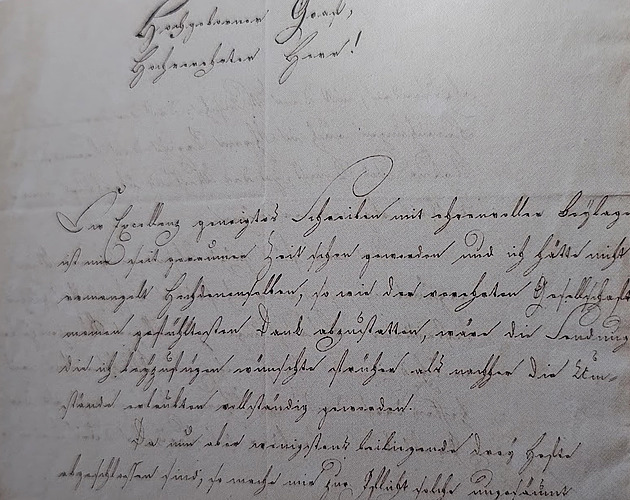 Hochgeborner Graf,
Hochverehrter Herr!
Ew Excellenz geneigtes Schreiben mit ehrenvoller Beylage
ist mir seit geraumer Zeit schon geworden und ich hätte nicht
ermangelt Hochdenenselben, so wie der verehrten Gesellschaft
meinen gefühltesten Dank abzustatten, wäre die Sendung
die ich beyzufügen wünschte früher als nachher die Um-
stände erlaubten vollständig geworden.
Da nun aber wenigstens beiliegende drey Hefte
abgeschlossen sind, so mache mir zur Pflicht solche ungesäumt